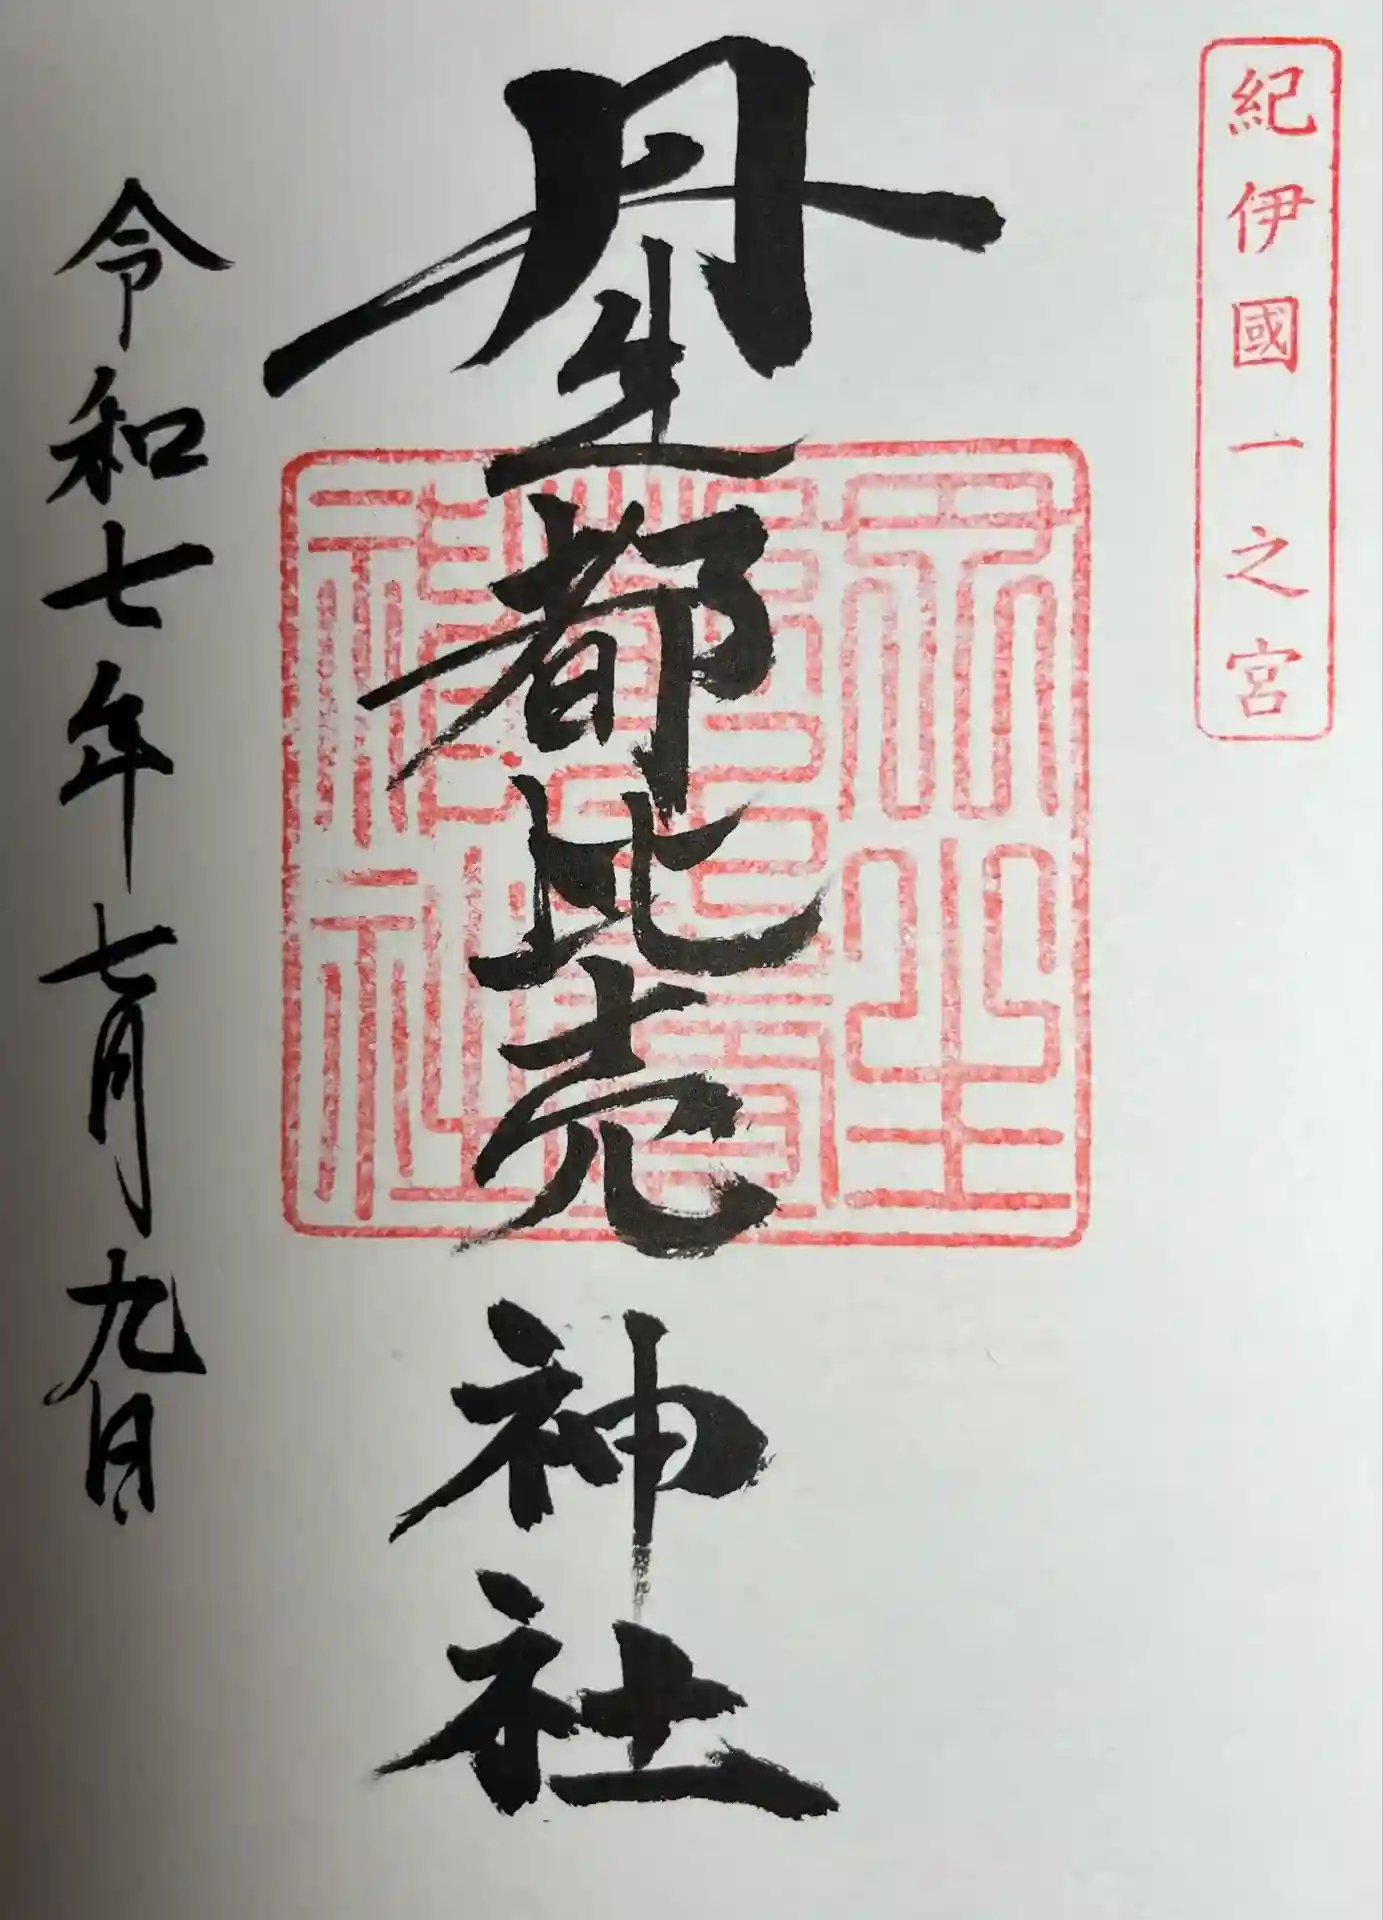 紀伊國一之宮
丹生都比売神社
令和七年七月九日